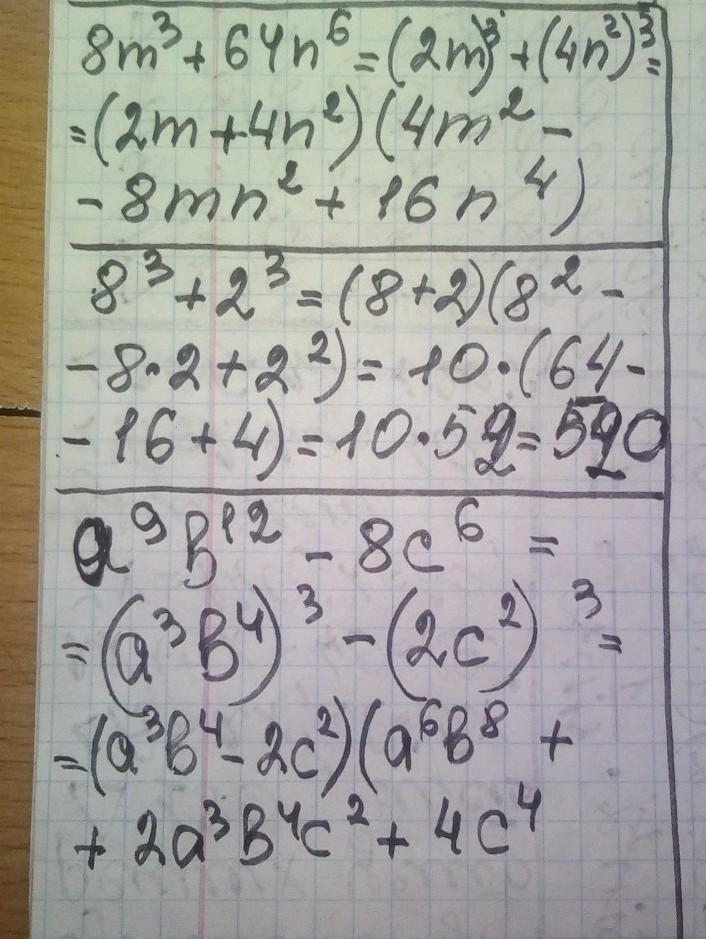 8m³ + 64n⁶ = (2m)³ + (4n²)³ =
= (2m + 4n²)(4m² -
- 8mn² + 16n⁴)
8³ + 2³ = (8+2)(8² -
- 8·2 + 2²) = 10·(64 -
- 16 + 4) = 10·52 = 520
a⁹b¹² - 8c⁶ =
= (a³b⁴)³ - (2c²)³ =
= (a³b⁴ - 2c²)(a⁶b⁸ +
+ 2a³b⁴c² + 4c⁴